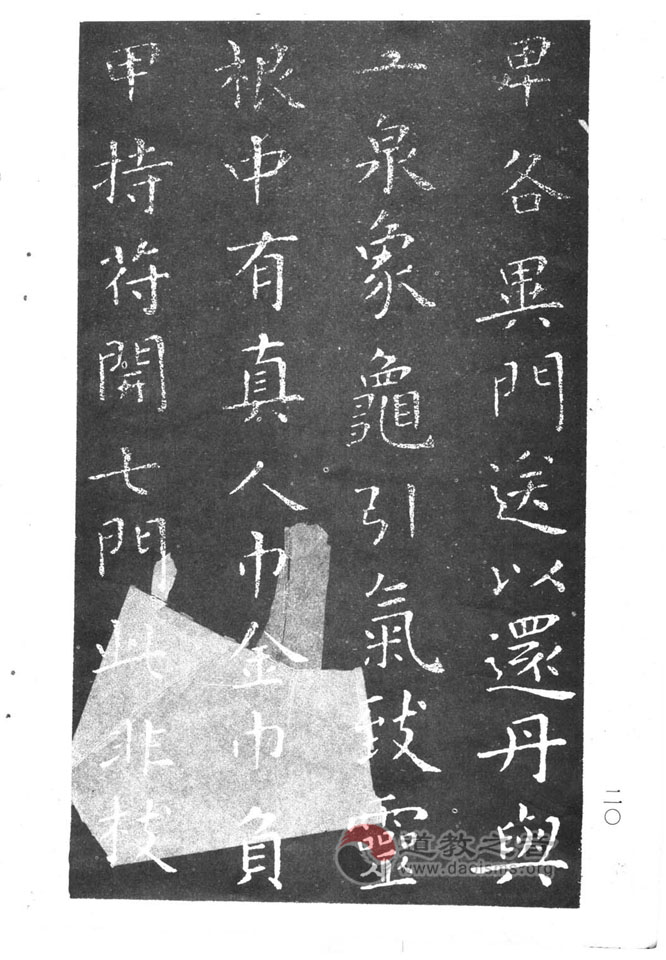 卑各異門送以還丹與
亠泉象龜引氣致靈
根中有真人巾金巾負
甲持符開七門此非枝
二〇
道教之音
www.daoisms.org